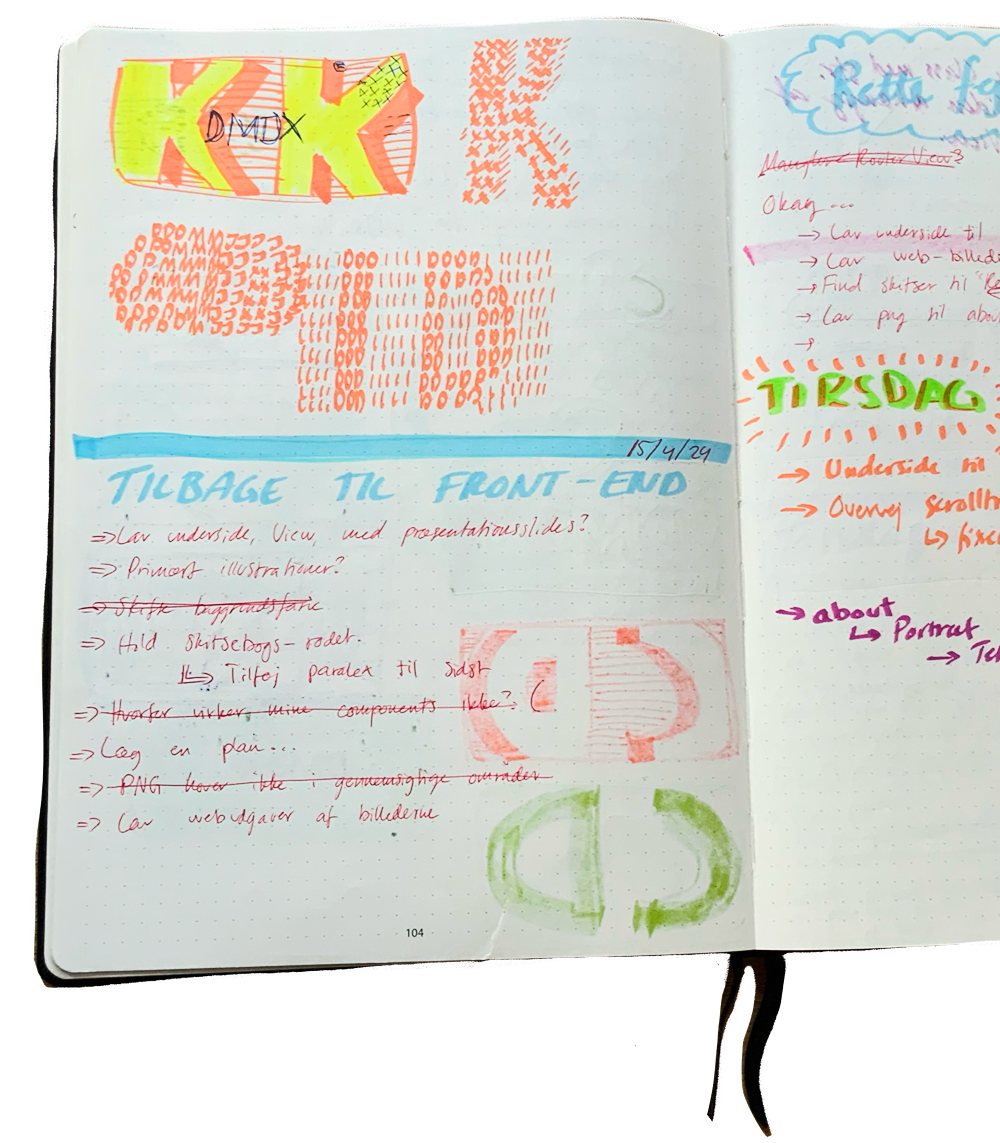 KK
DMJX
K
15/4/24
TILBAGE TIL FRONT-END
=> Lav underside, View, med præsentationsslides?
=> Primært illustrationer?
=> Skifte baggrundsfarve
=> Hold skitsebogs-rodet.
↳ Tilføj paralex til sidst
=> Hvorfor virker mine components ikke? :(
=> Læg en plan...
=> PNG hover ikke i gennemsigtige områder
=> Lav webudgaver af billederne
104
Rette
Router View?
Okay...
→ Lav underside til
→ Lav web-billede
→ Find skitser til
→ Lav png til abou
→
TIRSDAG
→ Underside til
→ Overvej scrollt
↳ fixe
→ about
↳ Portræt
→ Te